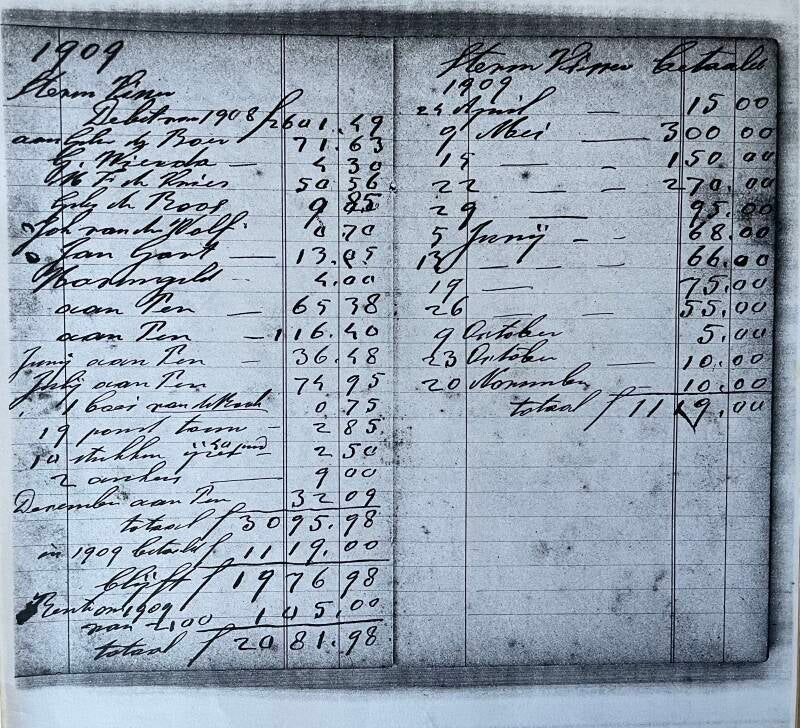 1909
Herm Visser
Debet van 1908 f 2601.49
aan Gebr de Boer 71.63
G. Wierda — 4 30
de Vries 50 56
Gebr de Roos 9 85
Joh van der Wolf 0 70
Jan Gort — 13.05
Havengeld 4.00
aan Ten — 65 38
aan Ten — 116.40
Junij aan Ten — 36.48
Julij aan Ten 74 95
1 boei van de 0 75
19 pond touw — 2 85
10 stukken 2 50
2 ankers — 9 00
December aan Ten 32 09
totaal f 3095.98
in 1909 betaald f 1119.00
blijft f 1976 98
Rente van 1909
van 2100 105.00
totaal f 2081.98
Herm Visser betaald
1909
24 April — 15 00
9 Mei — 300 00
15 — — 150 00
22 — — 270.00
29 — 95.00
5 Junij — - 68.00
12 — — - 66.00
19 — — 75.00
26 — — 55.00
9 October 5.00
23 October — 10.00
20 November 10.00
totaal f 1119.00